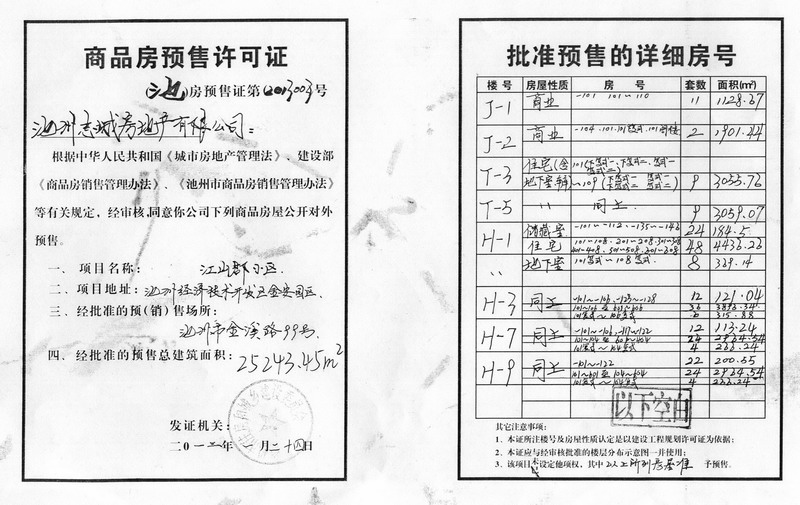 商品房预售许可证
池房预售证第(2013003号
池州志城房地产有限公司:
根据中华人民共和国《城市房地产管理法》、建设部
《商品房销售管理办法》、《池州市商品房销售管理办法》
等有关规定,经审核,同意你公司下列商品房屋公开对外
预售。
一、项目名称: 江山郡小区.
二、项目地址: 池州经济技术开发区金安园区.
三、经批准的预(销)售场所:
池州市金溪路99号.
四、经批准的预售总建筑面积: 25243.45m²
发证机关:
二0一三年 一月二十四日
批准预售的详细房号
楼号 房屋性质 房号 套数 面积(㎡)
J-1 商业 -101 101~110 11 1128.37
J-2 商业 2 1901.44
J-3 住宅(含地下室) 9 3055.76
J-5 〃 同上 9 3059.07
H-1 储藏室 -101~-112、-135~-146 24 184.5
住宅 101~108、201~208、301~308 48 4436.26
〃 地下室 8 339.14
H-3 同上 -101~-106、-123~-128 12 121.04
36
315.88
H-7 同上 -101~-106、-117~-122 12 113.24
24 2964.54
4 233.24
H-9 同上 -101~-122 22 200.55
24 2964.54
4 233.24
以下空白
其它注意事项:
1、本证所注楼号及房屋性质认定是以建设工程规划许可证为依据;
2、本证应与经审核批准的楼层分布示意图一并使用;
3、该项目未设定他项权,其中 以上所列房屋准 予预售。